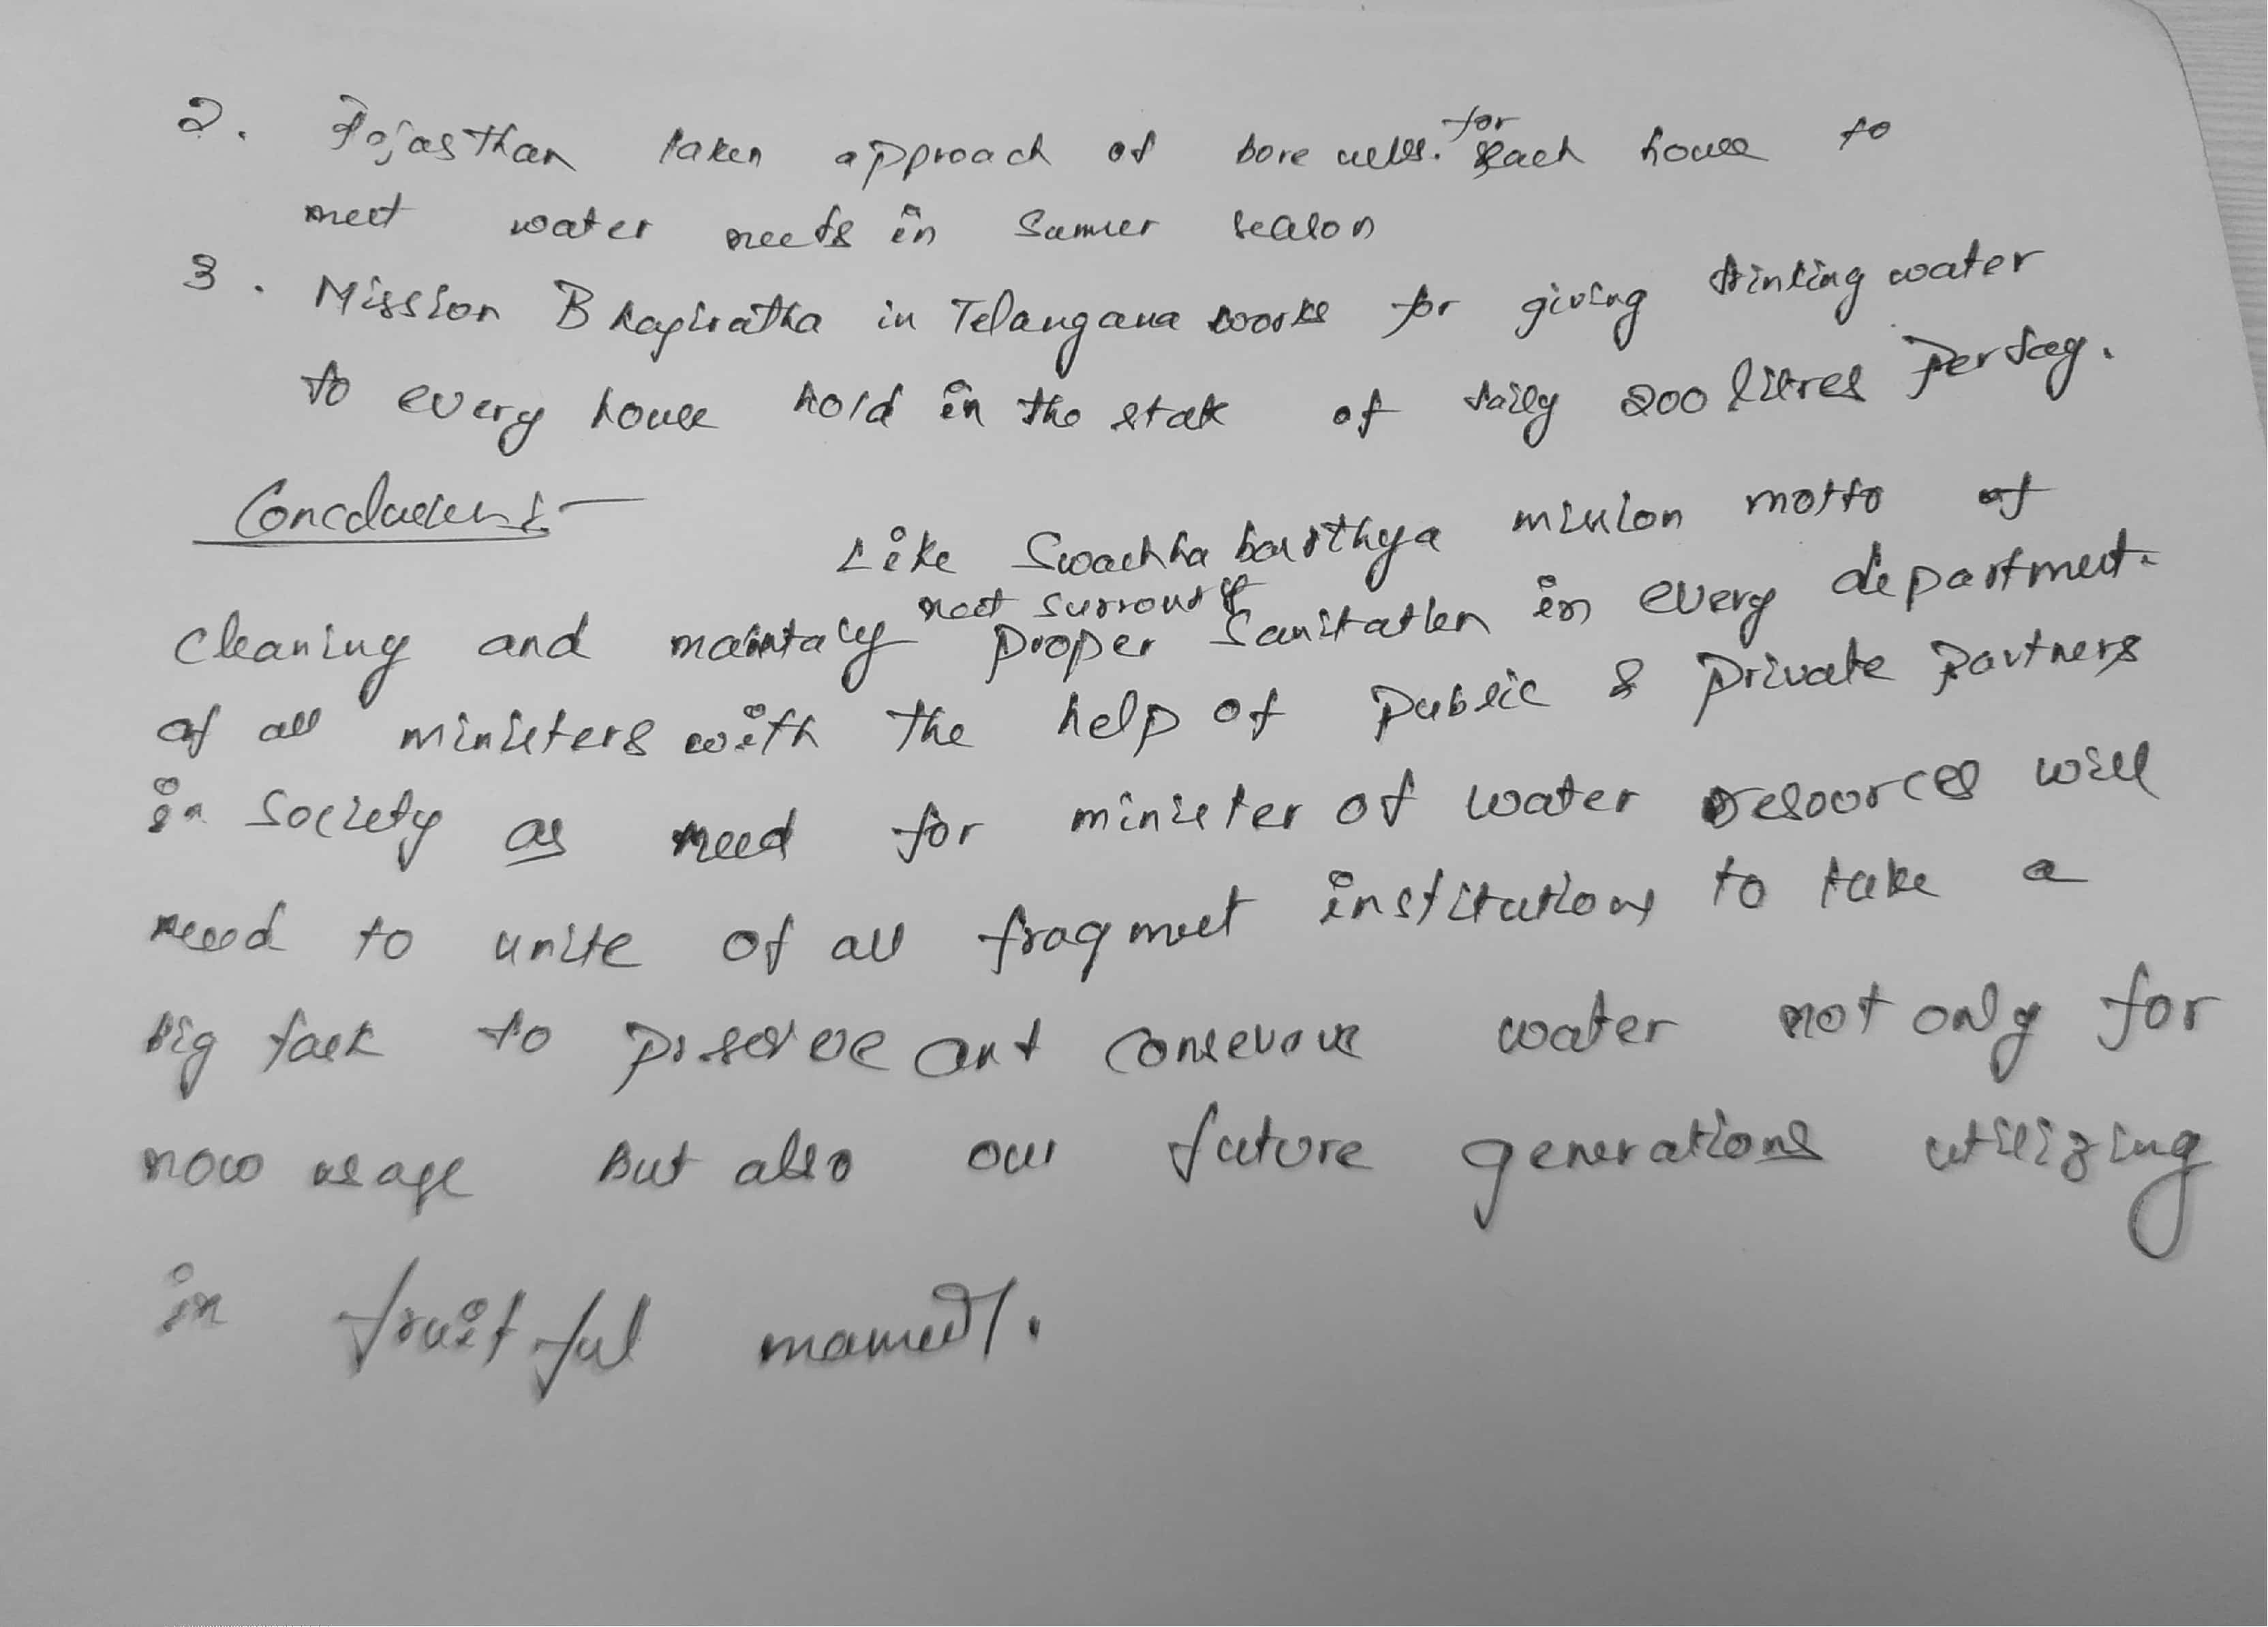 2. Rajasthan taken approach of bore wells. for Each house to
meet water needs in Summer season
3. Mission Bhagiratha in Telangana works for giving drinking water
to every house hold in the state of daily 200 litres Per day.
Conclusion:-
Like Swachha barthya mission motto of
cleaning and maintaing neat surround proper Sanitation in every department.
of all ministers with the help of Public & Private Partners
in Society as need for minister of water resources will
need to unite of all fragment institutions to take a
big task to preserve and conserve water not only for
now usage But also our future generations utilizing
in fruitful manner.